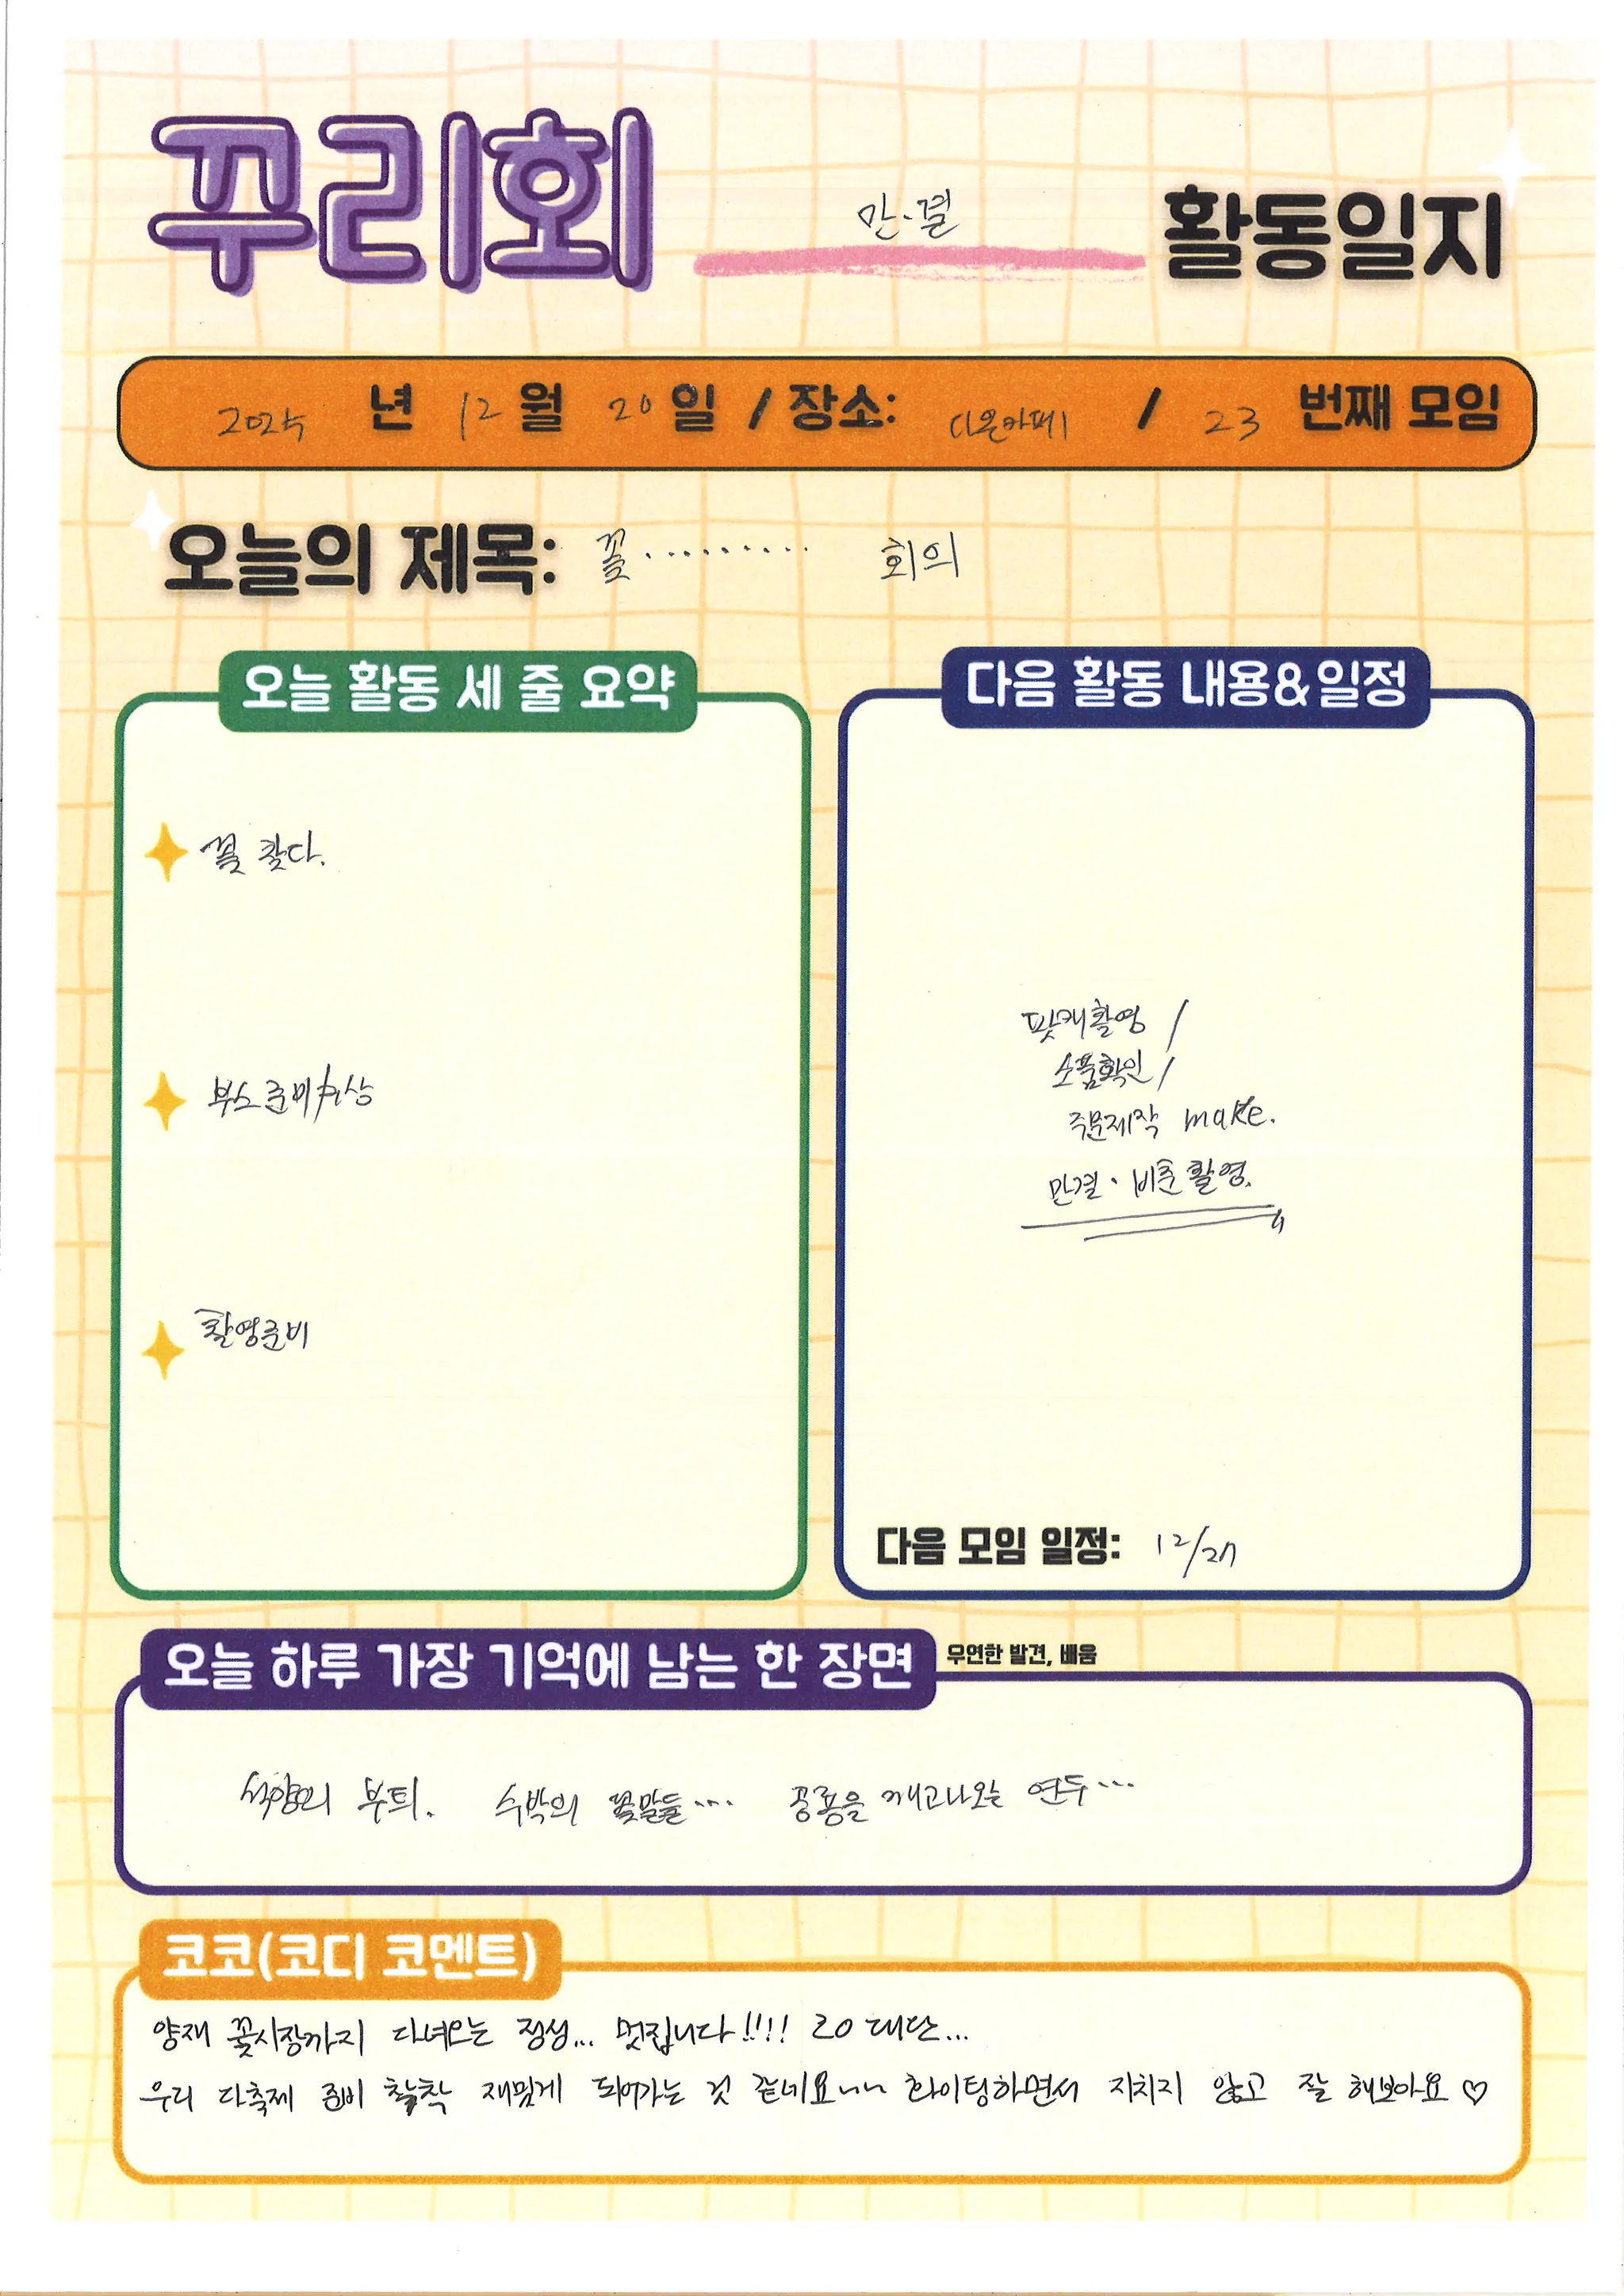 꾸리회 만.결 활동일지
2025 년 12 월 20 일 / 장소: 디온카페 / 23 번째 모임
오늘의 제목: 꽃.......... 회의
오늘 활동 세 줄 요약
꽃 찾다.
부스 준비
촬영준비
다음 활동 내용&일정
팟캐촬영 /
소품확인 /
주문제작 make.
만결·비춘 촬영.
다음 모임 일정: 12/27
오늘 하루 가장 기억에 남는 한 장면 우연한 발견, 배움
석양의 부틔. 수박의 꽃말들... 공룡을 깨고나오는 연두...
코코(코디 코멘트)
양재 꽃시장까지 다녀오는 정성... 멋집니다!!!! 20 대단...
우리 다축제 준비 착착 재밌게 되어가는 것 같네요~~ 화이팅하면서 지치지 않고 잘 해보아요 ♡